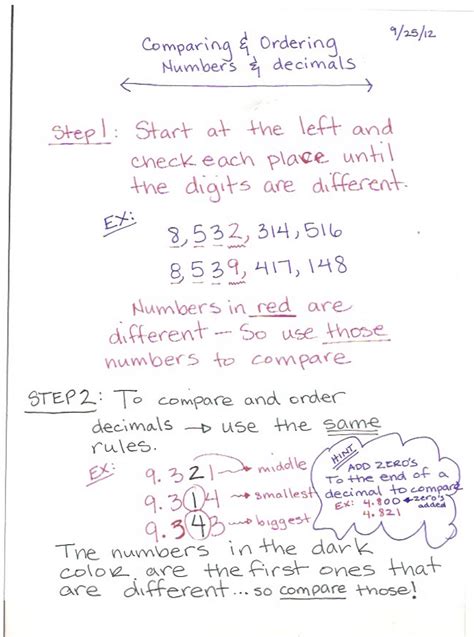 9/25/12
Comparing & Ordering
Numbers & decimals
Step 1: Start at the left and
check each place until
the digits are different.
EX:
8,532,314,516
8,539,417,148
Numbers in red are
different - So use those
numbers to compare
STEP 2: To compare and order
decimals → use the same
rules.
EX: 9.321 → middle
9.314 → smallest
9.343 → biggest
HINT
ADD ZERO'S
To the end of a
decimal to compare
EX: 4.800 ← zero's
added
4.821
The numbers in the dark
color are the first ones that
are different... so compare those!